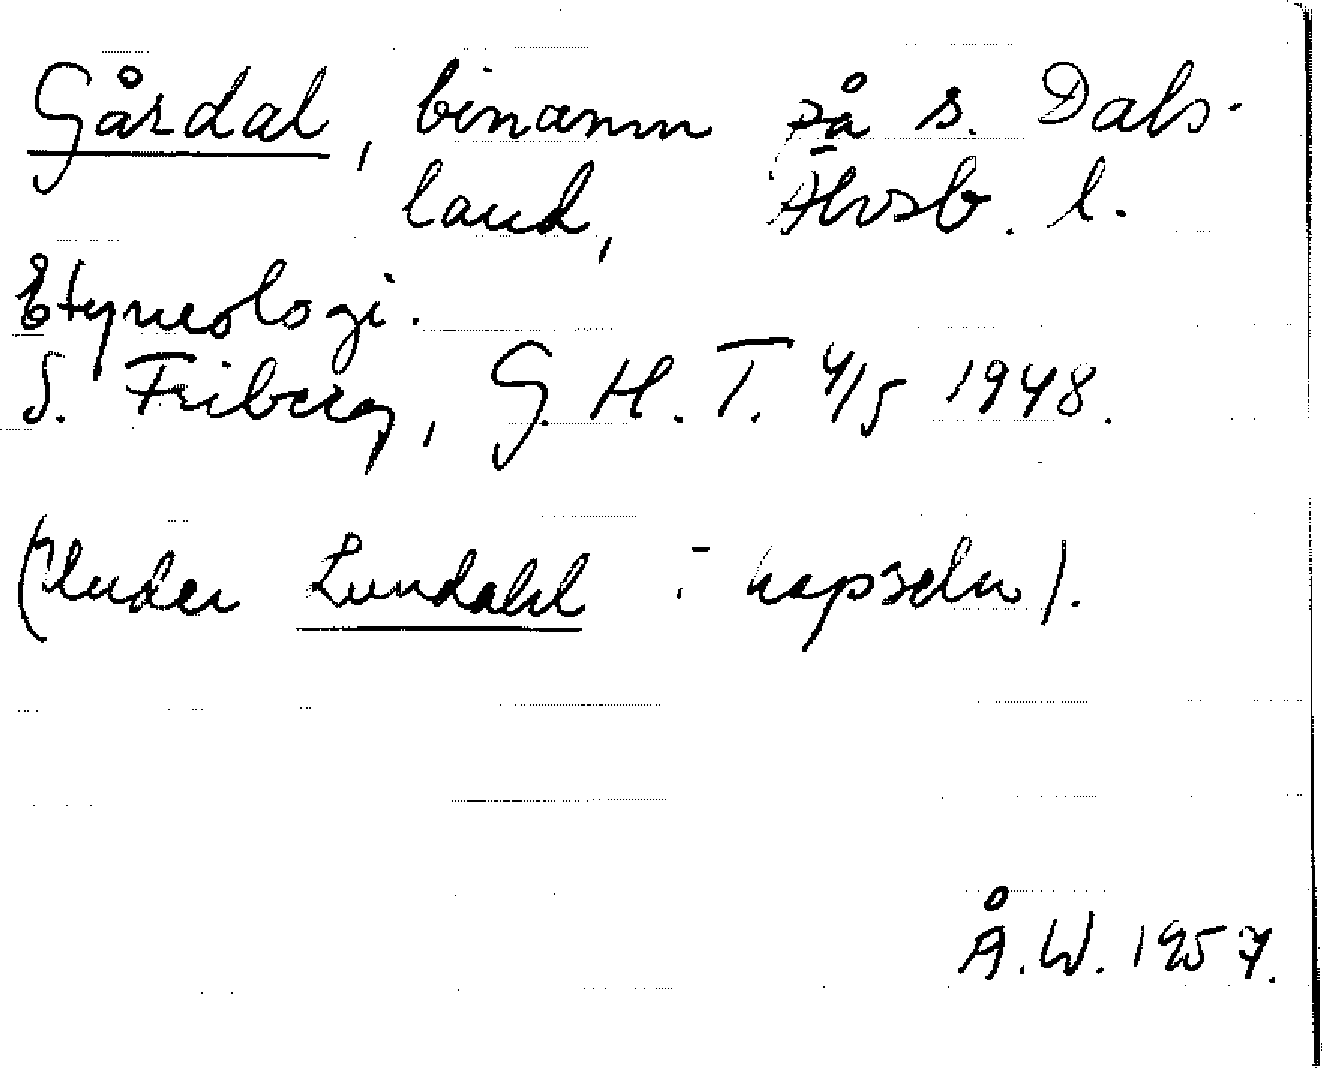 Gårdal, binamn på s. Dals-
land, Älvsb. l.
Etymologi.
S. Friberg, G. H. T. 4/5 1948.
(Under Lundahl i kapseln).
Å. W. 1957.